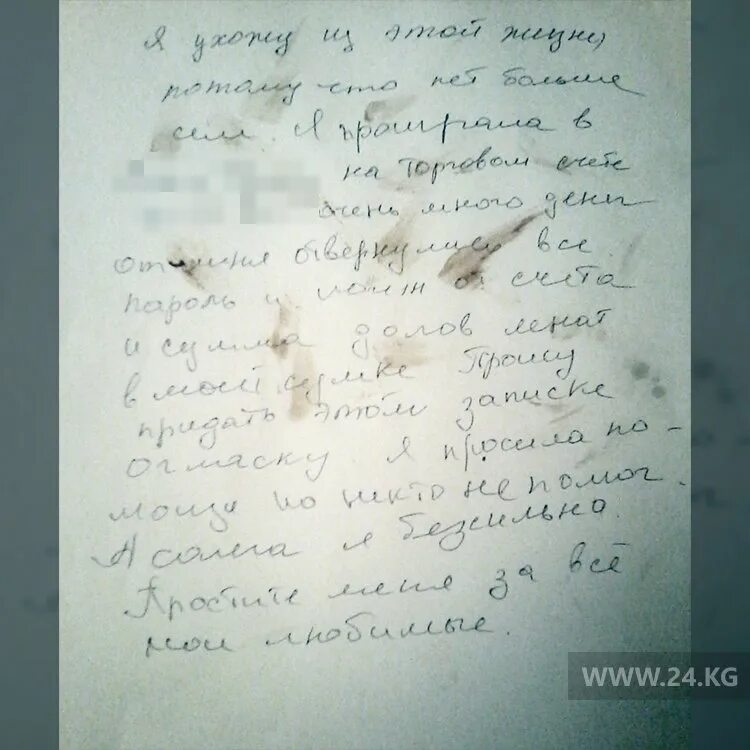 Я ухожу из этой жизни,
потому что нет больше
сил. Я проиграла в
на торговом счете
очень много денг
от меня отвернулись все
пароль и логин от счета
и сумма долгов лежат
в моей сумке Прошу
придать этой записке
огласку Я просила по-
мощи но никто не помог.
А сама я безсильна.
Простите меня за всё
мои любимые.
WWW.24.KG